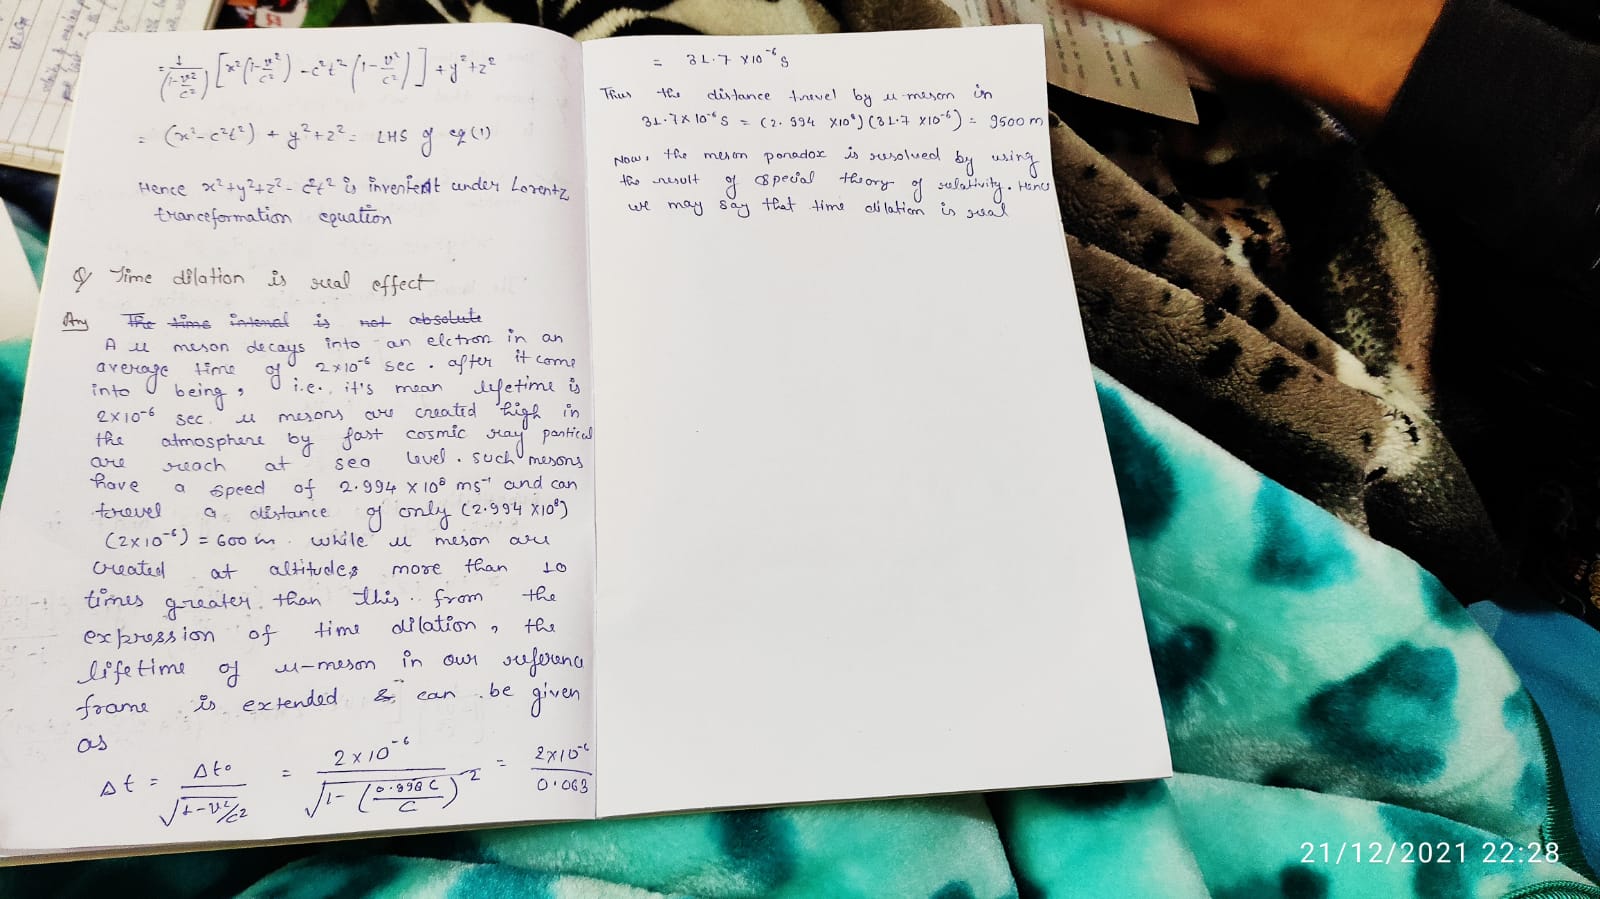 = 1/(1-v²/c²) [x²(1-v²/c²) - c²t²(1-v²/c²)] + y²+z²
= (x²-c²t²) + y²+z² = LHS of eq (1)
Hence x²+y²+z²- c²t² is invarient under Lorentz
tranceformation equation
Q Time dilation is real effect
Ans The time interval is not absolute
A u meson decays into an elctron in an
average time of 2x10⁻⁶ sec. after it come
into being, i.e. it's mean lifetime is
2x10⁻⁶ sec. u mesons are created high in
the atmosphere by fast cosmic ray partical
are reach at sea level. such mesons
have a speed of 2.994 x10⁸ ms⁻¹ and can
travel a distance of only (2.994 x10⁸)
(2x10⁻⁶) = 600 m. while u meson are
created at altitudes more than 10
times greater than this. from the
expression of time dilation, the
lifetime of u-meson in our reference
frame is extended & can be given
as
Δt = Δt₀/√(1-v²/c²) = 2x10⁻⁶/√(1-(0.998C/C)²) = 2x10⁻⁶/0.063
= 31.7 x10⁻⁶ s
Thus the distance travel by u-meson in
31.7x10⁻⁶ s = (2.994 x10⁸)(31.7 x10⁻⁶) = 9500 m
Now, the meson paradox is resolved by using
the result of special theory of relativity. Hence
we may say that time dilation is real
21/12/2021 22:28